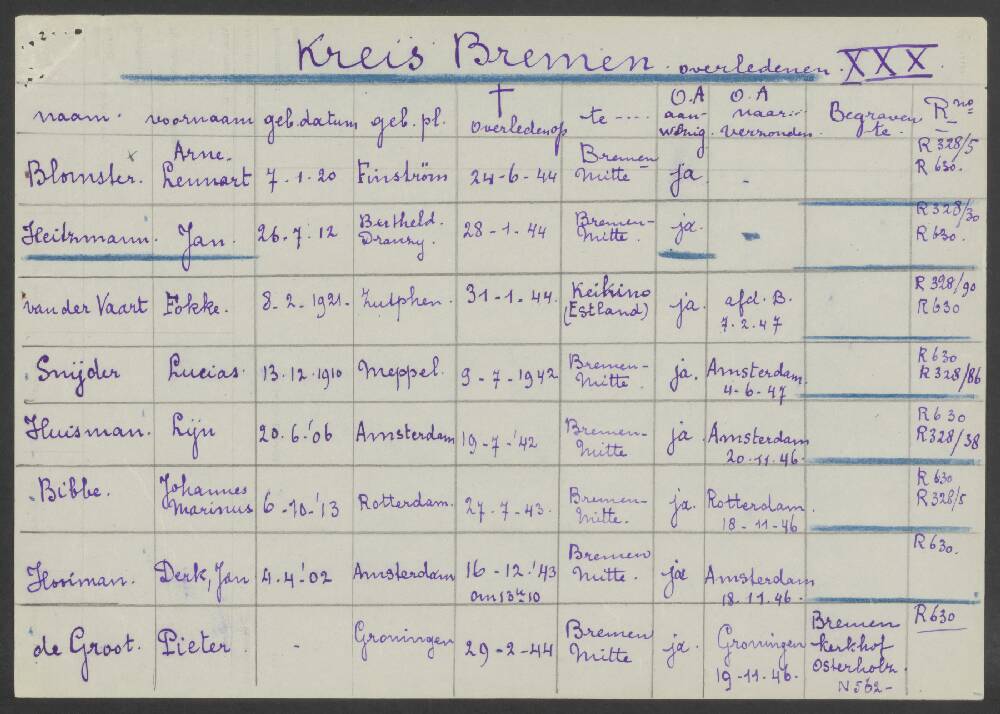 Kreis Bremen. overledenen. XXX.
naam. voornaam geb. datum geb. pl. † overleden op te ---- O.A aanwezig. O.A naar: verzonden. Begraven te. R no
Blomster. Arne- Lennart 7.1.20 Finström 24-6-44 Bremen Mitte ja. - R 328/5 R 630.
Heitzmann. Jan. 26.7.'12 28-1-44 Bremen- Mitte. ja. - R 328/30 R 630.
van der Vaart Fokke. 8.2.1921. Zutphen. 31-1-44. Keikino (Estland) ja. afd. B. 7.2.47 R 328/90 R 630
Snijder Lucias. 13.12.1910 Meppel. 9-7-1942 Bremen- Mitte. ja. Amsterdam. 4-6-47 R 630 R 328/86
Huisman. Lijn 20.6.'06 Amsterdam 19-7-'42 Bremen- Mitte ja Amsterdam 20.11.46. R 630 R328/38
Bibbe. Johannes Marinus 6-10-'13 Rotterdam. 27.7-43. Bremen- Mitte. ja. Rotterdam. 18-11-46 R 630 R328/5
Hooiman. Derk, Jan 4.4.'02 Amsterdam 16-12.'43 om 13 u 10 Bremen Mitte. ja Amsterdam 18.11.46. R 630.
de Groot. Pieter - Groningen 29-2-44 Bremen Mitte ja. Groningen 19-11-46. Bremen kerkhof Osterholz. N 562- R 630